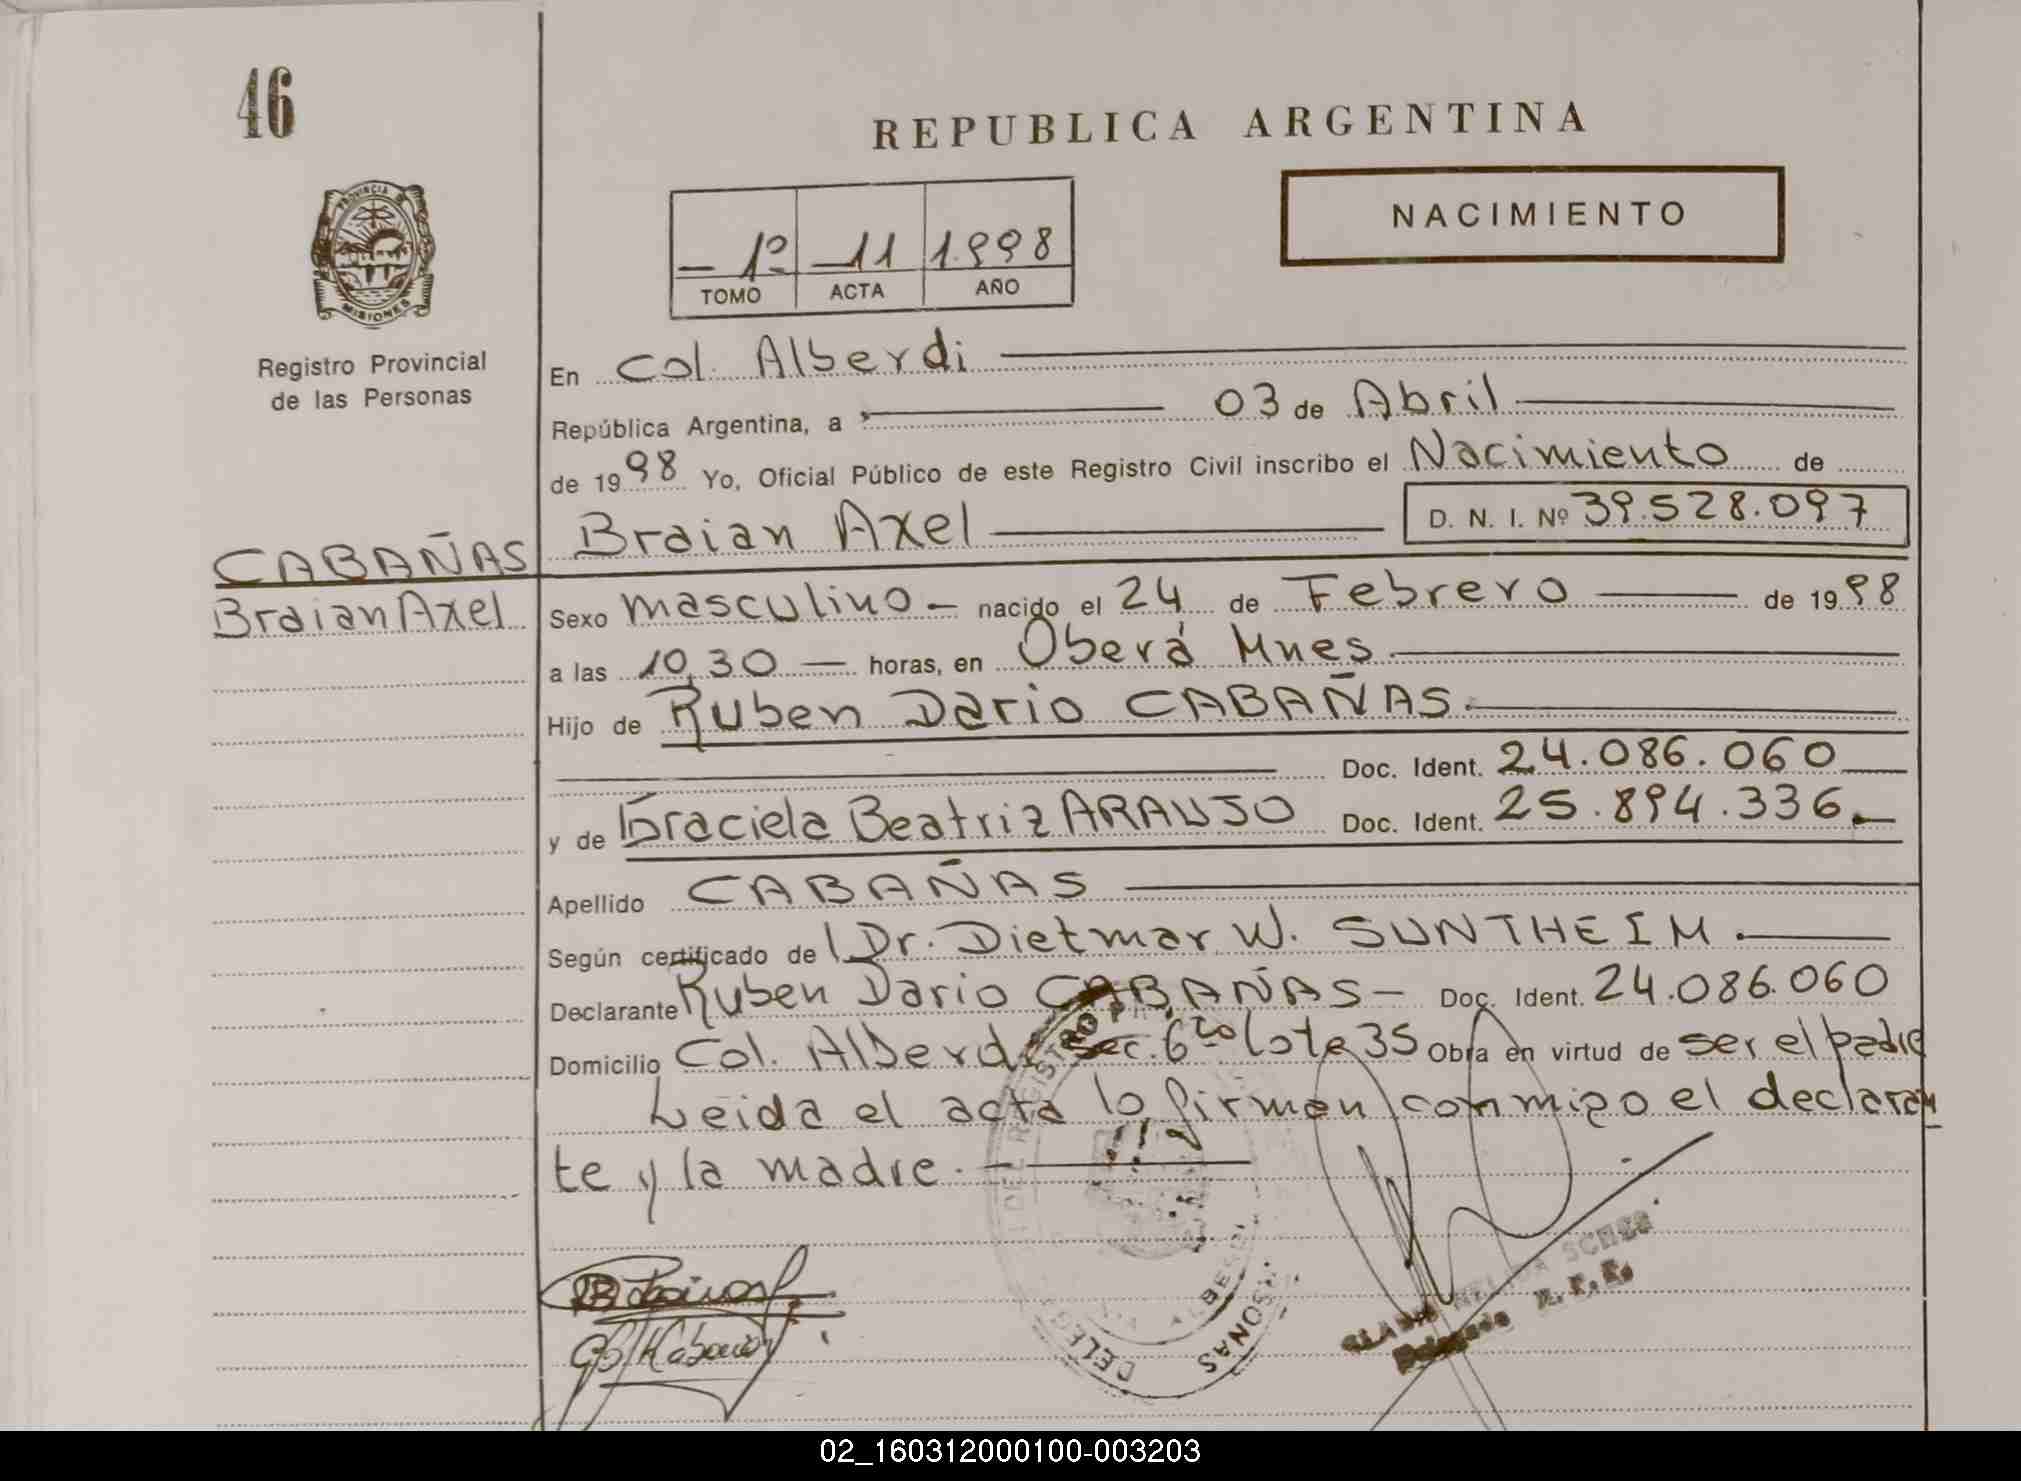 46
REPUBLICA ARGENTINA
PROVINCIA DE MISIONES
NACIMIENTO
- 1º - 11 1.998
TOMO ACTA AÑO
Registro Provincial
de las Personas
En Col. Alberdi
República Argentina, a 03 de Abril
de 1998 Yo, Oficial Público de este Registro Civil inscribo el Nacimiento de
Braian Axel D. N. I. Nº 39.528.097
CABAÑAS
Braian Axel
Sexo masculino - nacido el 24 de Febrero de 1998
a las 10,30 horas, en Oberá Mnes
Hijo de Ruben Dario CABAÑAS.
Doc. Ident. 24.086.060
y de Graciela Beatriz ARAUJO Doc. Ident. 25.894.336.
Apellido CABAÑAS
Según certificado de Dr. Dietmar W. SUNTHEIM.
Declarante Ruben Dario CABAÑAS - Doc. Ident. 24.086.060
Domicilio Col. Alberdi Sec. 6ta Lote 35 Obra en virtud de ser el padre
Leida el acta lo firman conmigo el declaran
te y la madre.
Delegado R.P.P.
02_160312000100-003203